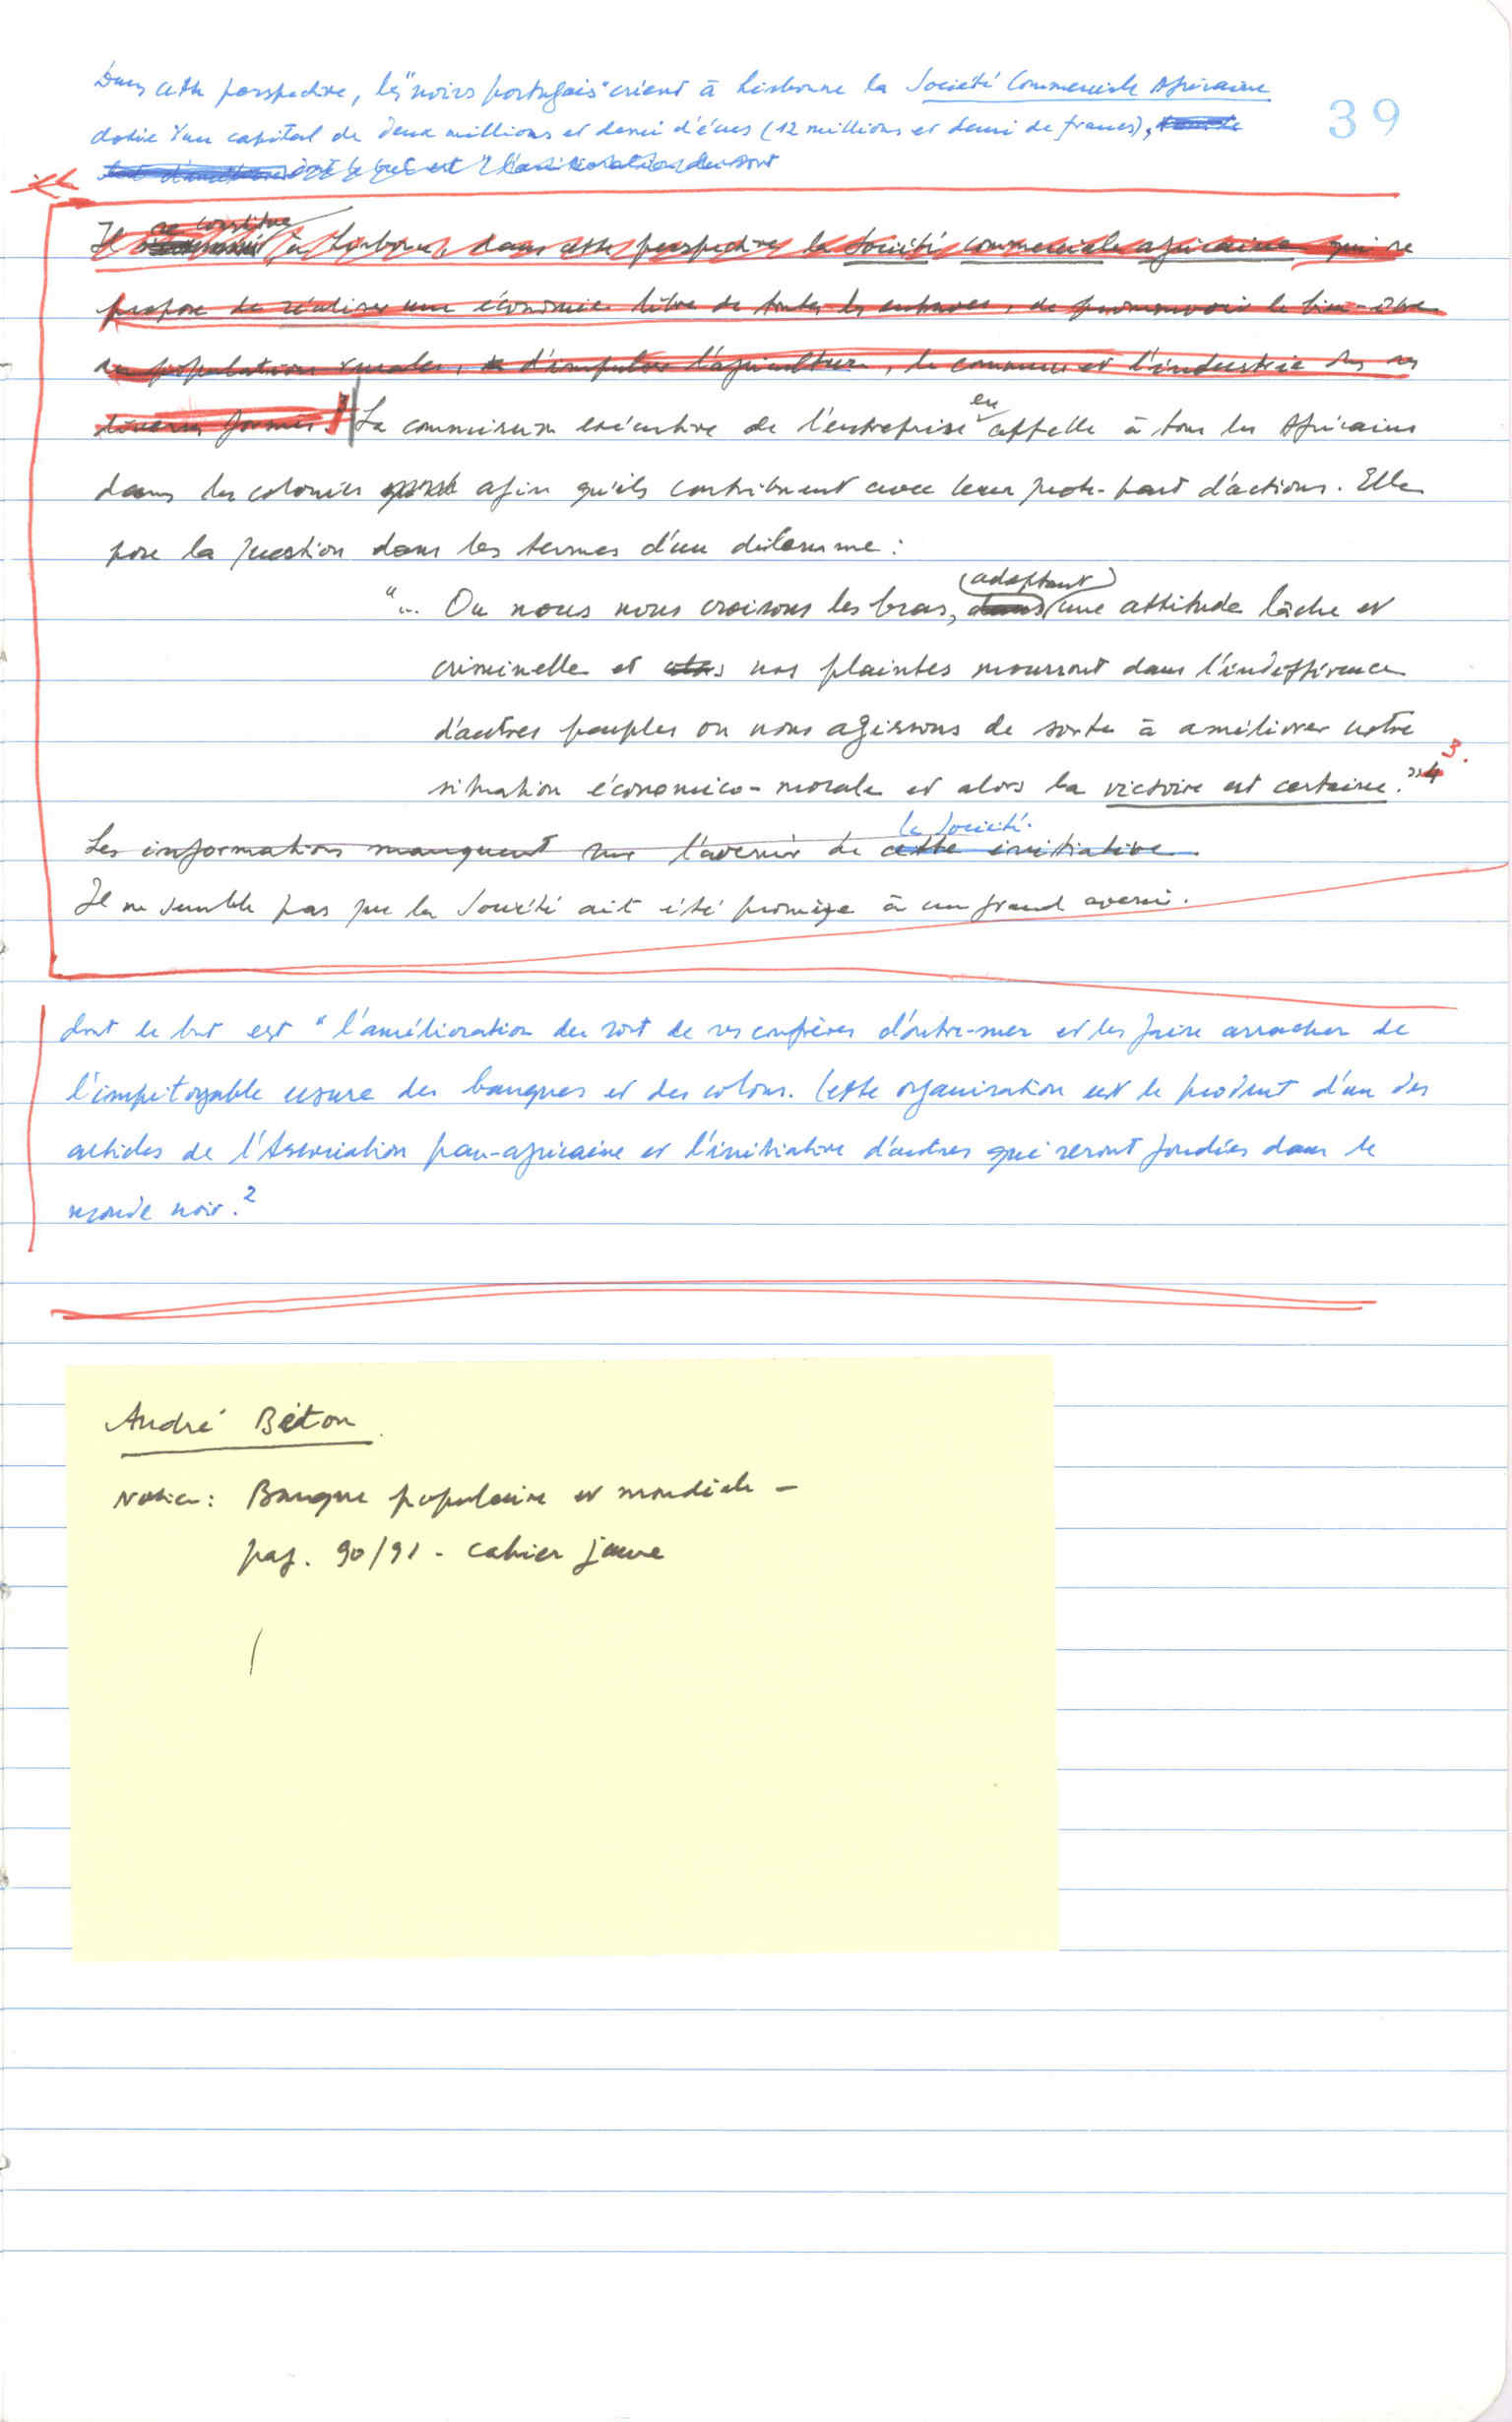 Dans cette perspective, les "noirs portugais" créent à Lisbonne la Société Commerciale Africaine
39
dotée d'un capital de deux millions et demi d'écus (12 millions et demi de francs),
Il se constitue à Lisbonne, dans cette perspective la Société commerciale africaine qui se
propose de réaliser une économie libre de toutes les entraves, de promouvoir le bien-être
des populations rurales, d'impulser l'agriculture, le commerce et l'industrie dans ses
diverses formes. La commission exécutive de l'entreprise en appelle à tous les Africains
dans les colonies afin qu'ils contribuent avec leur quote-part d'actions. Elle
pose la question dans les termes d'un dilemme :
"... Ou nous nous croisons les bras, dans (adoptant) une attitude lâche et
criminelle et alors nos plaintes mourront dans l'indifférence
d'autres peuples ou nous agissons de sorte à améliorer notre
situation économico-morale et alors la victoire est certaine." 4 3.
Les informations manquent sur l'avenir de cette initiative
la Société.
Il ne semble pas que la Société ait été promise à un grand avenir.
dont le but est "l'amélioration du sort de ses confrères d'outre-mer et les faire arracher de
l'impitoyable usure des banques et des colons. Cette organisation est le produit d'un des
articles de l'Association pan-africaine et l'initiative d'autres qui seront fondées dans le
monde noir.2
André Béton
Notice : Banque populaire et mondiale -
pag. 90/91 - cahier jaune